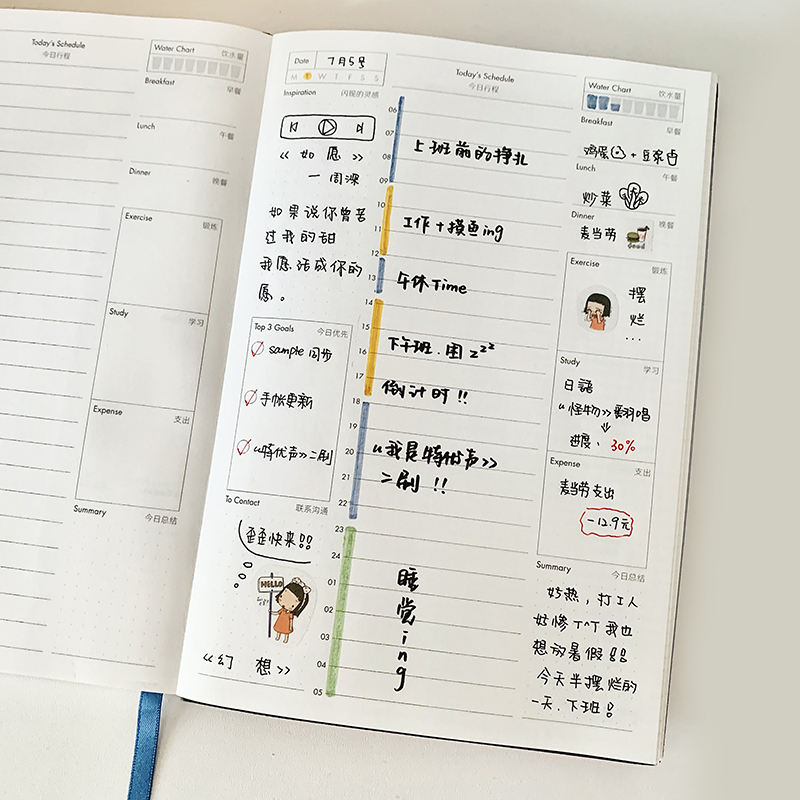 Today's Schedule
今日行程
Water Chart 饮水量
Breakfast 早餐
Lunch 午餐
Dinner 晚餐
Exercise 锻炼
Study 学习
Expense 支出
Summary 今日总结
Date 7月5号
M T W T F S S
Inspiration 闪现的灵感
《如愿》
一周深
如果说你曾苦
过我的甜
我愿活成你的
愿。
Top 3 Goals 今日优先
sample同步
手帐更新
《特优声》二刷
To Contact 联系沟通
歪歪快来!!
HELLO
《幻想》
Today's Schedule
今日行程
06
07
上班前的挣扎
08
09
10
工作+摸鱼ing
11
12
13
午休Time
14
15
下午班.困zzz
16
17
倒计时!!
18
19
20
《我是特优声》
21
二刷!!
22
23
24
01
睡觉ing
02
03
04
05
Water Chart 饮水量
Breakfast 早餐
鸡蛋+豆浆
Lunch 午餐
炒菜
Dinner 晚餐
麦当劳
Exercise 锻炼
摆
烂
...
Study 学习
日語
《怪物》翻唱
进度:30%
Expense 支出
麦当劳支出
-12.9元
Summary 今日总结
好热,打工人
好惨T^T我也
想放暑假!!
今天半摆烂的
一天.下班!